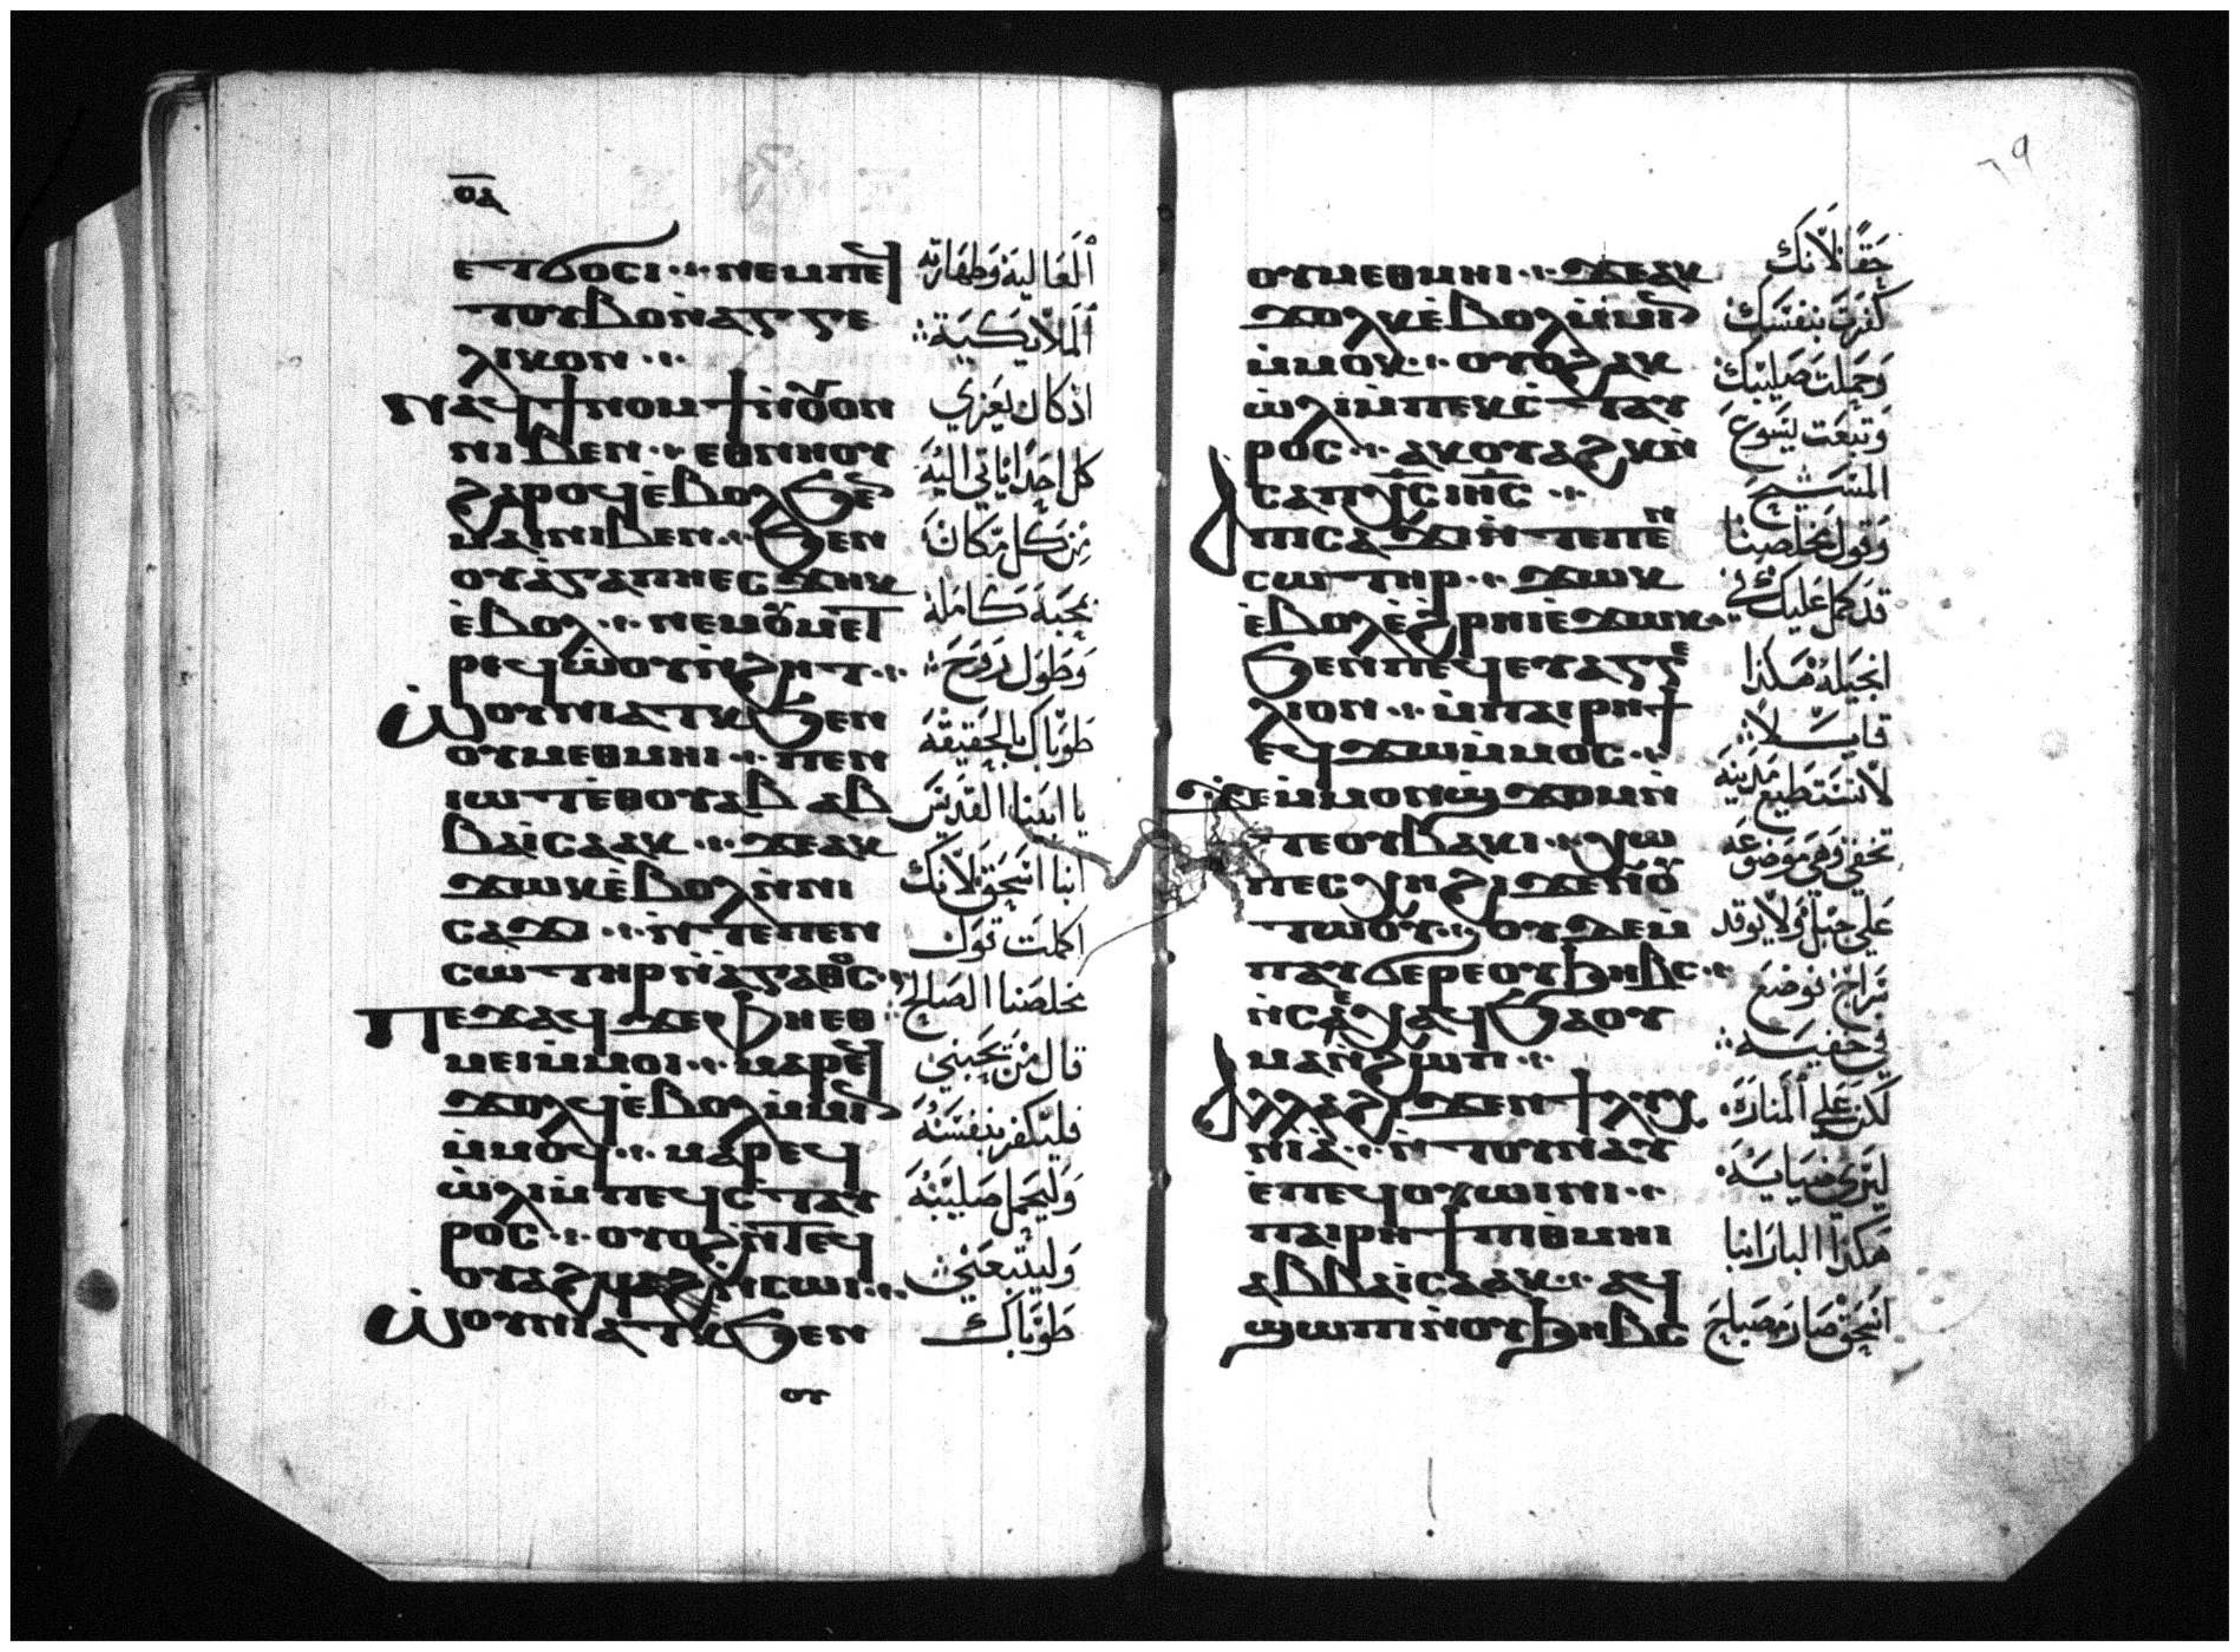 ⲟⲁ
ⲉⲧϭⲟⲥⲓ ⲛⲉⲙⲡⲉϥ
ⲧⲟⲩⲃⲟⲛ̀ⲁⲅⲅⲉ
ⲗⲓⲕⲟⲛ
ⲛⲁϥϯⲛⲟⲙϯⲛ̀ⲟⲩⲟⲛ
ⲛⲓⲃⲉⲛ ⲉⲑⲛⲏⲟⲩ
ϩⲁⲣⲟϥⲉ̀ⲃⲟⲗϧⲉⲛ
ⲙⲁⲓⲛⲓⲃⲉⲛ ϧⲉⲛ
ⲟⲩⲁ̀ⲅⲁⲡⲏⲉⲥϫⲏⲕ
ⲉ̀ⲃⲟⲗ ⲛⲉⲙⲟⲩⲙⲉⲧ
ⲣⲉϥⲱ̀ⲟⲩⲛ̀ϩⲏⲧ
ⲱ̀ⲟⲩⲛⲓⲁⲧⲕϧⲉⲛ
ⲟⲩⲙⲉⲑⲙⲏⲓ ⲡⲉⲛ
ⲓⲱⲧⲉ̀ⲑⲟⲩⲁⲃ ⲁⲃ
ⲃⲁⲓ̀ⲥⲁⲁⲕ ϫⲉⲁⲕ
ϫⲱⲕⲉ̀ⲃⲟⲗⲛ̀ⲛⲓ
ⲥⲁϫⲓ ⲛ̀ⲧⲉⲡⲉⲛ
ⲥⲱⲧⲏⲣⲛ̀ⲁ̀ⲅⲁⲑⲟⲥ
ⲡⲉϫⲁϥϫⲉⲫⲏⲉⲑ
ⲙⲉⲓⲙ̀ⲙⲟⲓ ⲙⲁⲣⲉϥ
ϫⲟⲗϥⲉ̀ⲃⲟⲗⲙ̀ⲙⲓⲛ
ⲙ̀ⲙⲟϥ ⲙⲁⲣⲉϥ
ⲱ̀ⲗⲓⲙ̀ⲡⲉϥⲥ̀ⲧⲁⲩ
ⲣⲟⲥ ⲟⲩⲟϩⲛ̀ⲧⲉϥ
ⲟⲩⲁϩϥⲛ̀ⲥⲱⲓ
ⲱ̀ⲟⲩⲛⲓⲁⲧⲕϧⲉⲛ
ⲟⲩ
اَلعَاليَة وَطهَارته
اَلمَلايكيَة
اذ كان يعَزي
كل احَد اياتي اليْه
مِن كل مَكان
بمحبَة كَاملة
وَطول رَوح
طوبَاك بالحَقيقة
يا ابَينا القديس
انبا اسَحَق لانك
اكملت قول
مخلصَنا الصَالح
قال مَن يحَبني
فليكفر بنفسَه
وَليحمل صَليبَه
وَليتبعَني
طوبَاك
٦٩
ⲟⲩⲙⲉⲑⲙⲏⲓ ϫⲉⲁⲕ
ϫⲟⲗⲕⲉ̀ⲃⲟⲗⲙ̀ⲙⲓⲛ
ⲙ̀ⲙⲟⲕ ⲟⲩⲟϩⲁⲕ
ⲱ̀ⲗⲓⲙ̀ⲡⲉⲕⲥ̀ⲧⲁⲩ
ⲣⲟⲥ ⲁⲕⲟⲩⲁϩⲕⲛ̀
ⲥⲁⲡⲭ̅ⲥ̅ⲓⲏ̅ⲥ̅
ⲁ̀ⲡⲓⲥⲁϫⲓⲛ̀ⲧⲉⲡⲉⲛ
ⲥⲱⲧⲏⲣ ϫⲱⲕ
ⲉ̀ⲃⲟⲗⲉ̀ϩⲣⲏⲓⲉ̀ϫⲱⲕ
ϧⲉⲛⲡⲉϥⲉⲩⲁⲅⲅⲉ
ⲗⲓⲟⲛ ⲙ̀ⲡⲁⲓⲣⲏϯ
ⲉϥϫⲱⲙ̀ⲙⲟⲥ
ϫⲉⲙ̀ⲙⲟⲛϣϫⲟⲙⲛ̀
ⲧⲉⲟⲩⲃⲁⲕⲓ ⲭⲱ
ⲡⲉⲥⲭⲏϩⲓϫⲉⲛⲟⲩ
ⲧⲱⲟⲩ ⲟⲩϫⲉⲙ̀
ⲡⲁⲩϭⲉⲣⲉⲟⲩϧⲏⲃⲥ
ⲛ̀ⲥⲉⲭⲁϥϧⲁⲟⲩ
ⲙⲁⲛ̀ϩⲱⲡ
ⲁⲗⲗⲁϩⲓϫⲉⲛϯⲗⲩⲭ
ⲛⲓⲁ̀ ⲛ̀ⲧⲟⲩⲛⲁⲩ
ⲉ̀ⲡⲉϥⲟⲩⲱⲓⲛⲓ
ⲡⲁⲓⲣⲏϯⲡⲓⲑ̀ⲙⲏⲓ
ⲁⲃⲃⲁⲓ̀ⲥⲁⲁⲕ ⲁϥ
ϣⲱⲡⲓⲛ̀ⲟⲩϧⲏⲃⲥ
حَقًا لانَك
كفرت بنفسَك
وَحمَلت صَليبك
وَتبعَت يسَوع
المسَيح
وَقول مخلصَنا
قد كمل عَليك في
انجيله هَكذا
قايــلا
لا تستَطيع مَدينة
تخفي وَهي مَوضوعَة
عَلي جبَل وَلا يوقد
سَراج فوضَع
في خفيــة
لكن عَلي المَنارَة
ليَري ضيايه
هَكذا البار انبا
اسَحَق صَار مصَباح